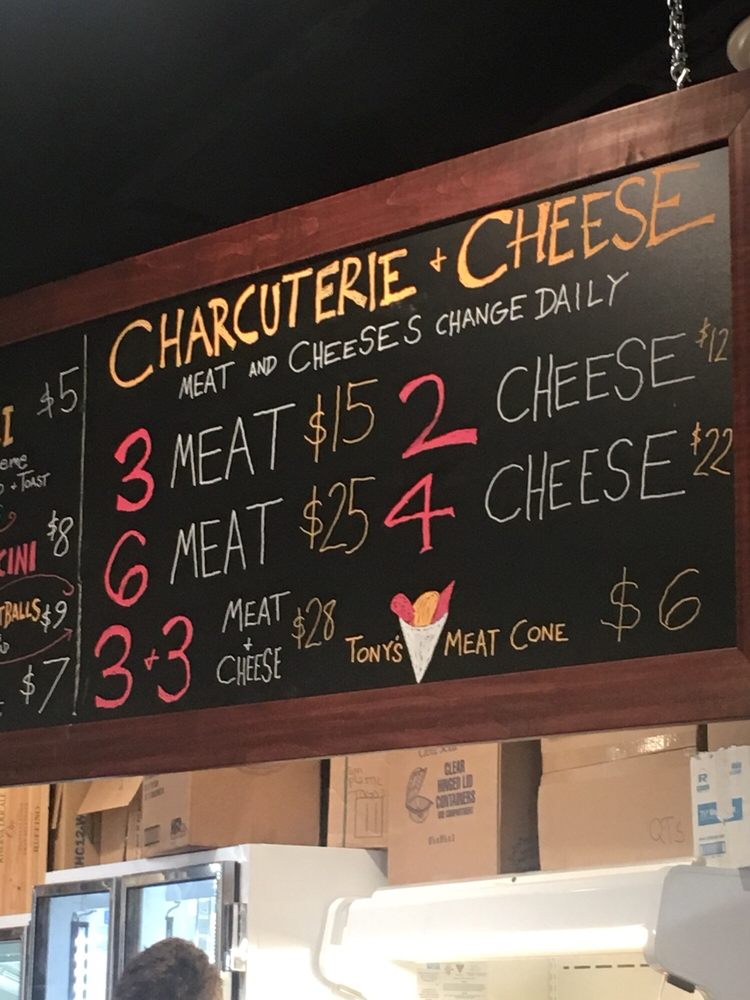 CHARCUTERIE + CHEESE
MEAT AND CHEESES CHANGE DAILY
3 MEAT $15
2 CHEESE $12
6 MEAT $25
4 CHEESE $22
3+3 MEAT + CHEESE $28
TONY'S MEAT CONE $6
$5
I
eme
+ TOAST
$8
CINI
TBALLS $9
$7
CLEAR
HINGED LID
CONTAINERS
QTS